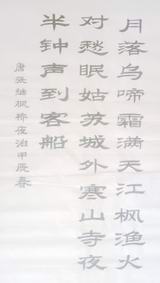 月落乌啼霜满天江枫渔火
对愁眠姑苏城外寒山寺夜
半钟声到客船
唐张继枫桥夜泊甲辰春